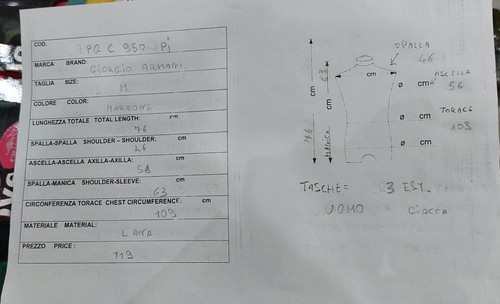 COD. IPG C 950 - Pj
MARCA BRAND: GIORGIO ARMANI
TAGLIA SIZE: M
COLORE COLOR: MARRONE
LUNGHEZZA TOTALE TOTAL LENGTH: cm
76
SPALLA-SPALLA SHOULDER – SHOULDER: cm
46
ASCELLA-ASCELLA AXILLA-AXILLA: cm
58
SPALLA-MANICA SHOULDER-SLEEVE: cm
63
CIRCONFERENZA TORACE CHEST CIRCUMFERENCE: cm
109
MATERIALE MATERIAL:
LANA
PREZZO PRICE :
119
SPALLA
46
63
cm
ASCELLA
cm
cm
ø cm
56
TORACE
ø cm
103
76
MANICA
ø cm
TASCHE = 3 EST.
UOMO GIACCA